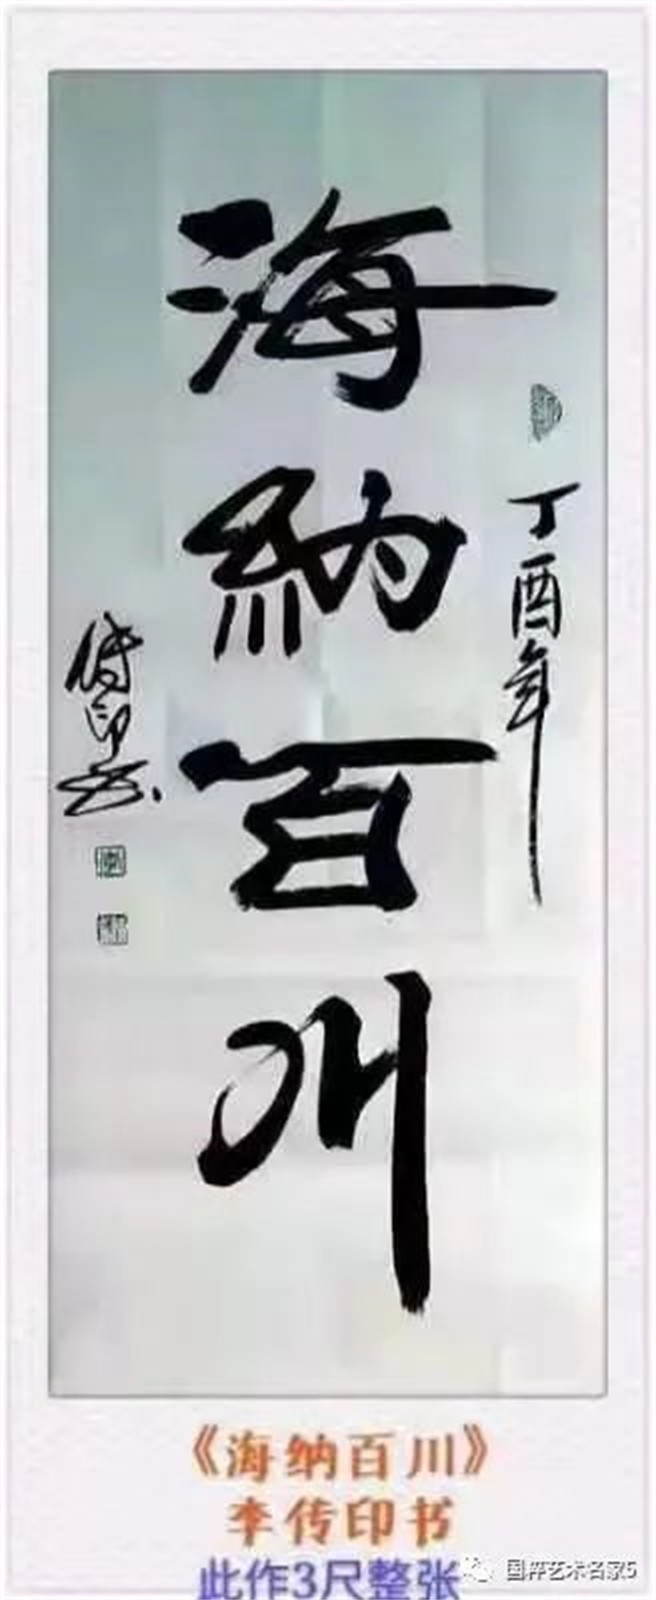 海納百川
丁酉年
传印书
《海纳百川》
李传印书
此作3尺整张
国粹艺术名家5